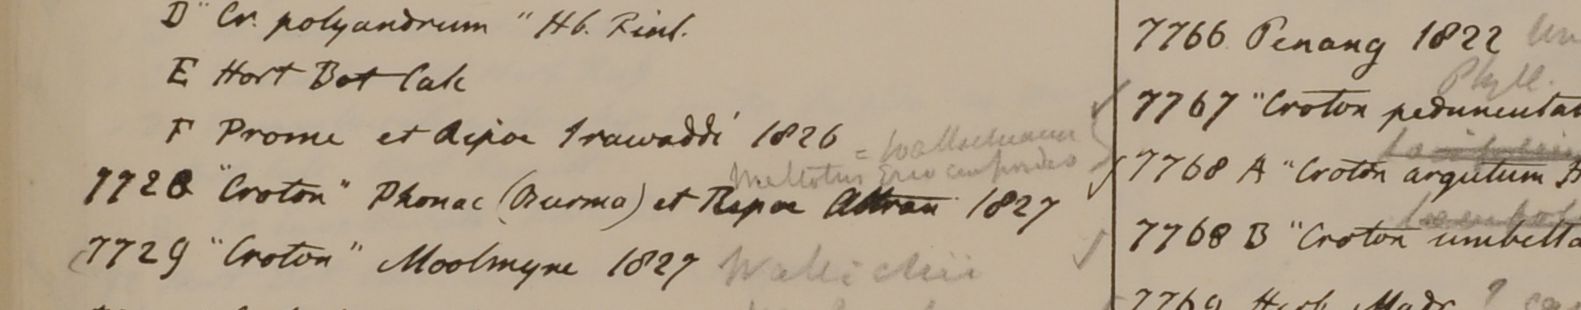 D "Cr. polyandrum" Hb. Finl.
E Hort Bot Calc
F Prome et Ripae Irawaddi 1826
= Wallichiana
Mallotus
7728 "Croton" Phonac (Burma) et Ripae Attran 1827
7729 "Croton" Moolmyne 1827 Wallichii
7766 Penang 1822
Phyll.
7767 "Croton
7768 A "Croton argutum
7768 B "Croton
7769 Herb. Madr ?